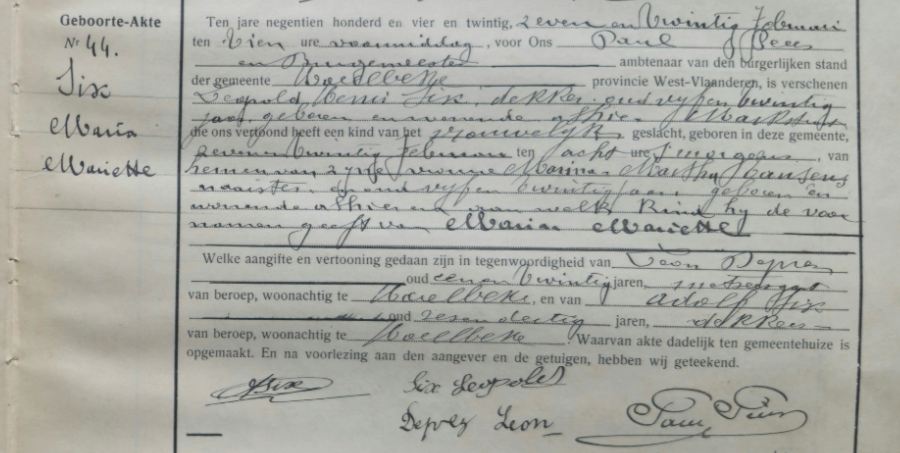 Geboorte-Akte
Nr 44.
Six
Maria
Mariette
Ten jare negentien honderd en vier en twintig, zeven en twintig Februari
ten tien ure voormiddag, voor Ons Paul
Burgemeester ambtenaar van den burgerlijken stand
der gemeente Harelbeke provincie West-Vlaanderen, is verschenen
Leopold Henri Six, dekker oud vyf en twintig
jaar, geboren en wonende alhier
die ons vertoond heeft een kind van het vrouwelyk geslacht, geboren in deze gemeente,
zeven en twintig Februari ten acht ure 's morgens, van
hem en van zyne vrouw Martha
naaister, oud vyf en twintig jaar, geboren en
wonende alhier en aan welk kind hy de voor
namen geeft van Maria Mariette
Welke aangifte en vertooning gedaan zijn in tegenwoordigheid van Leon Deprez
oud een en twintig jaren,
van beroep, woonachtig te Harelbeke, en van Adolf Six
oud zes en dertig jaren, dekker
van beroep, woonachtig te Harelbeke. Waarvan akte dadelijk ten gemeentehuize is
opgemaakt. En na voorlezing aan den aangever en de getuigen, hebben wij geteekend.
ASix Six Leopold
Deprez Leon Paul